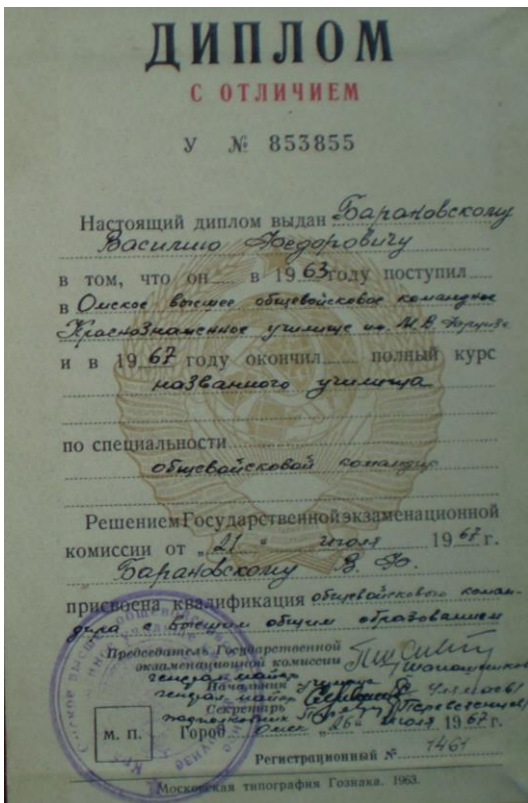 ДИПЛОМ
С ОТЛИЧИЕМ
У № 853855
Настоящий диплом выдан Барановскому
Василию Федоровичу
в том, что он в 1963 году поступил
в Омское высшее общевойсковое командное
Краснознаменное училище им. М.В. Фрунзе
и в 1967 году окончил полный курс
названного училища
по специальности
общевойсковой командир
Решением Государственной экзаменационной
комиссии от „21" июля 1967 г.
Барановскому В. Ф.
присвоена квалификация общевойскового коман-
дира с высшим общим образованием
Председатель Государственной
экзаменационной комиссии
генерал майор
Начальник училища
генерал майор
Секретарь
подполковник
М. П.
Город Омск „26" июля 1967 г.
Регистрационный № 1461
Московская типография Гознака. 1963.